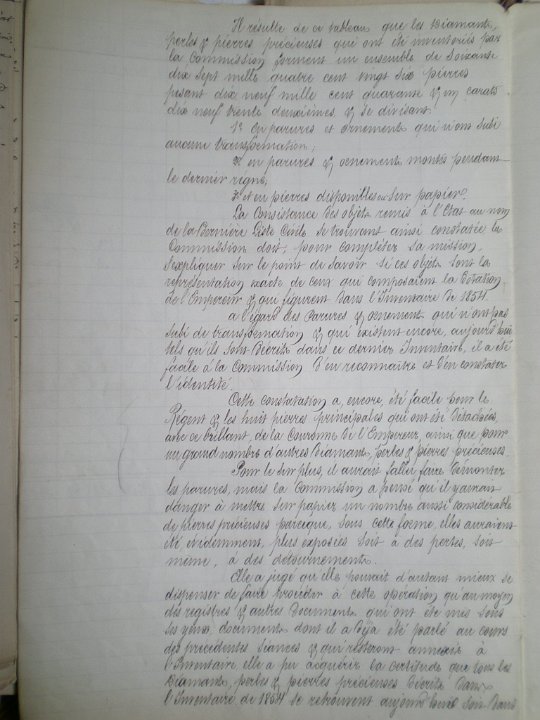 Il résulte de ce tableau que les Diamants,
perles & pierres précieuses qui ont été inventoriés par
la Commission forment un ensemble de Soixante
dix sept mille quatre cent vingt six pierres
pesant dix neuf mille cent quarante & un carats
dix neuf trente deuxièmes & se divisant:
1º En parures et ornements qui n'ont subi
aucune transformation;
2º en parures & ornements montés pendant
le dernier règne;
3º et en pierres disponibles sur papier.
La Consistance des objets remis à l'Etat au nom
de la Dernière Liste Civile se trouvant ainsi constatée la
Commission doit, pour compléter sa mission,
s'expliquer sur le point de savoir si ces objets sont la
représentation exacte de ceux qui composaient la Dotation
de l'Empereur & qui figurent dans l'Inventaire de 1854.
à l'égard des Parures & ornements qui n'ont pas
subi de transformation & qui existent encore, aujourd'hui
tels qu'ils sont Décrits dans ce dernier Inventaire, il a été
facile à la Commission d'en reconnaitre et d'en constater
l'identité.
Cette constatation a, encore, été facile pour le
Régent & les huit pierres principales qui ont été détachées,
avec ce brillant, de la Couronne de l'Empereur, ainsi que pour
un grand nombre d'autres Diamants, perles & pierres précieuses.
Pour le surplus, il aurait fallu faire démonter
les parures, mais la Commission a pensé qu'il y aurait
danger à mettre sur papier un nombre aussi considérable
de pierres précieuses parceque, sous cette forme, elles auraient
été évidemment, plus exposées soit à des pertes, soit
même, à des détournements.
Elle a jugé qu'elle pouvait d'autant mieux se
dispenser de faire procéder à cette opération qu'au moyen
des registres & autres Documents qui ont été mis sous
ses yeux, documents dont il a déjà été parlé au cours
des précédentes séances & qui resteront annexés à
l'Inventaire elle a pu acquérir la certitude que tous les
Diamants, perles & pierres précieuses décrits dans
l'Inventaire de 1854 se retrouvent aujourd'hui soit dans